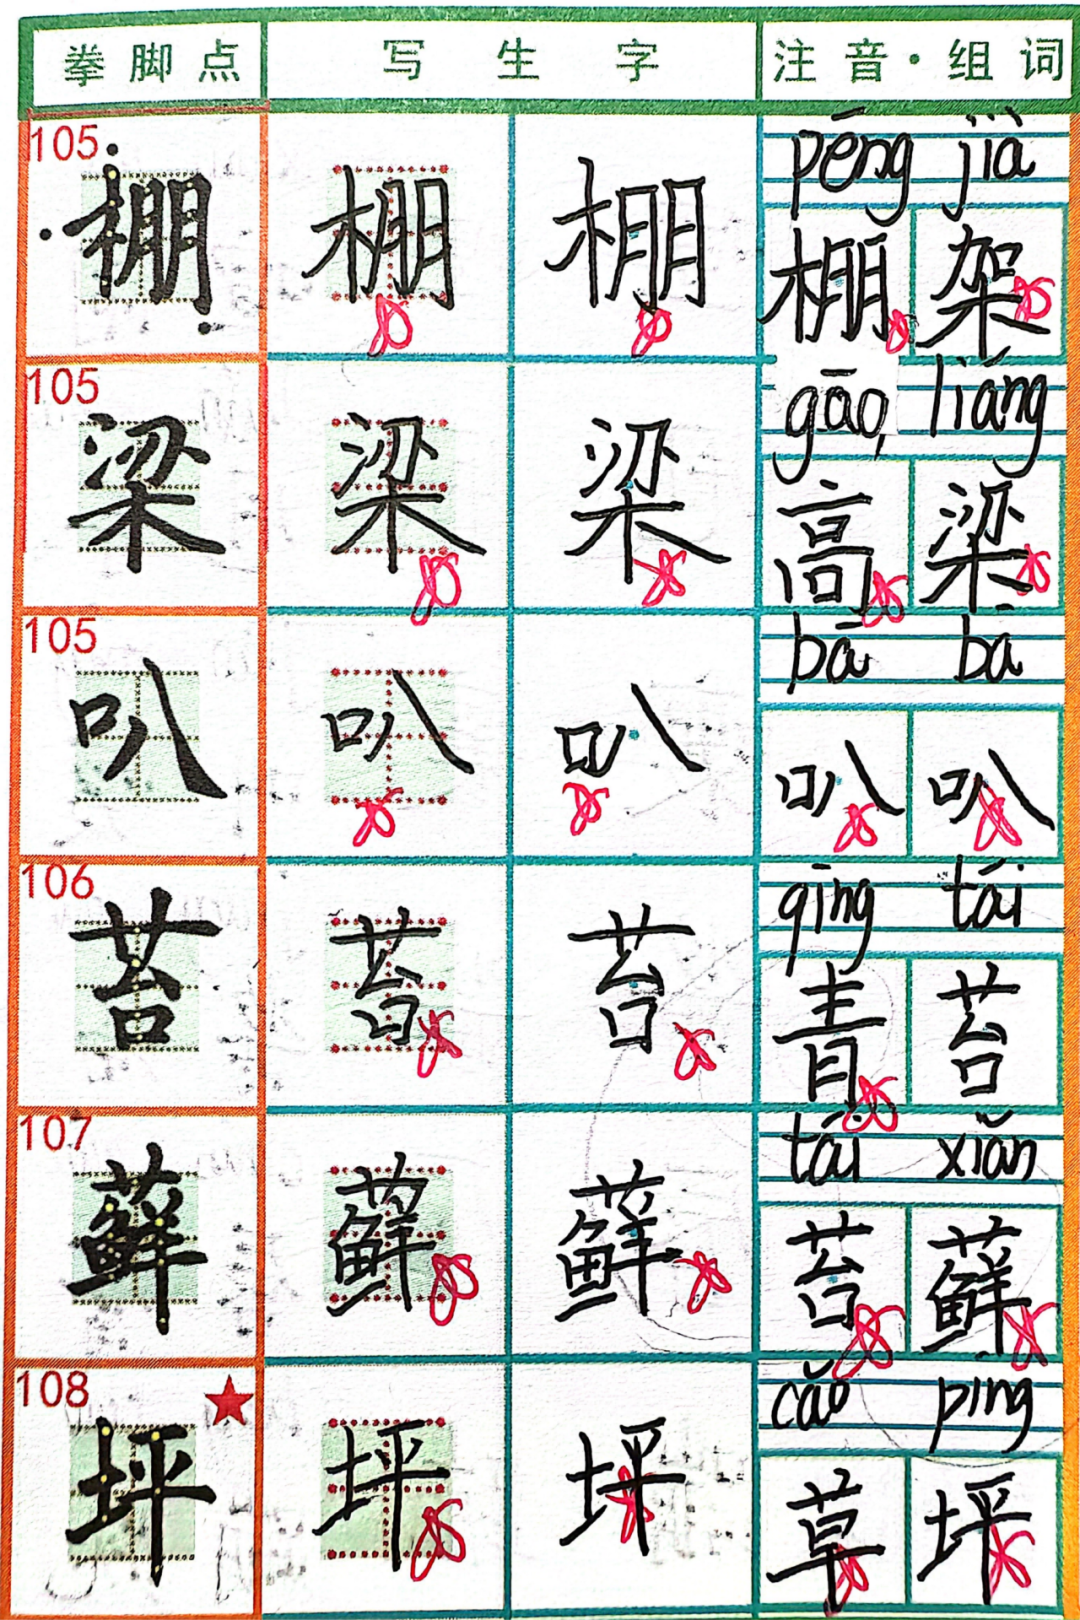 拳脚点 写生字 注音·组词
105 pēng jià
棚 棚 棚 棚架
105 gāo liáng
梁 梁 梁 高梁
105 bā bā
叭 叭 叭 叭叭
106 qīng tái
苔 苔 苔 青苔
107 tái xiǎn
藓 藓 藓 苔藓
108 cǎo píng
坪 坪 坪 草坪